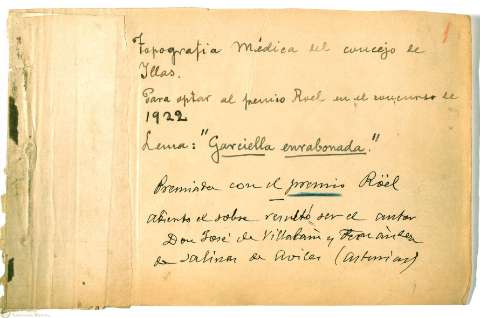 1
Topografía Médica del concejo de
Illas.
Para optar al premio Roel en el concurso de
1922
Lema: "Garciella enrabonada."
Premiada con el premio Röel
abierto el sobre resultó ser el autor
Don José de Villalaín y Fernández
de Salinas de Avilés (Asturias)